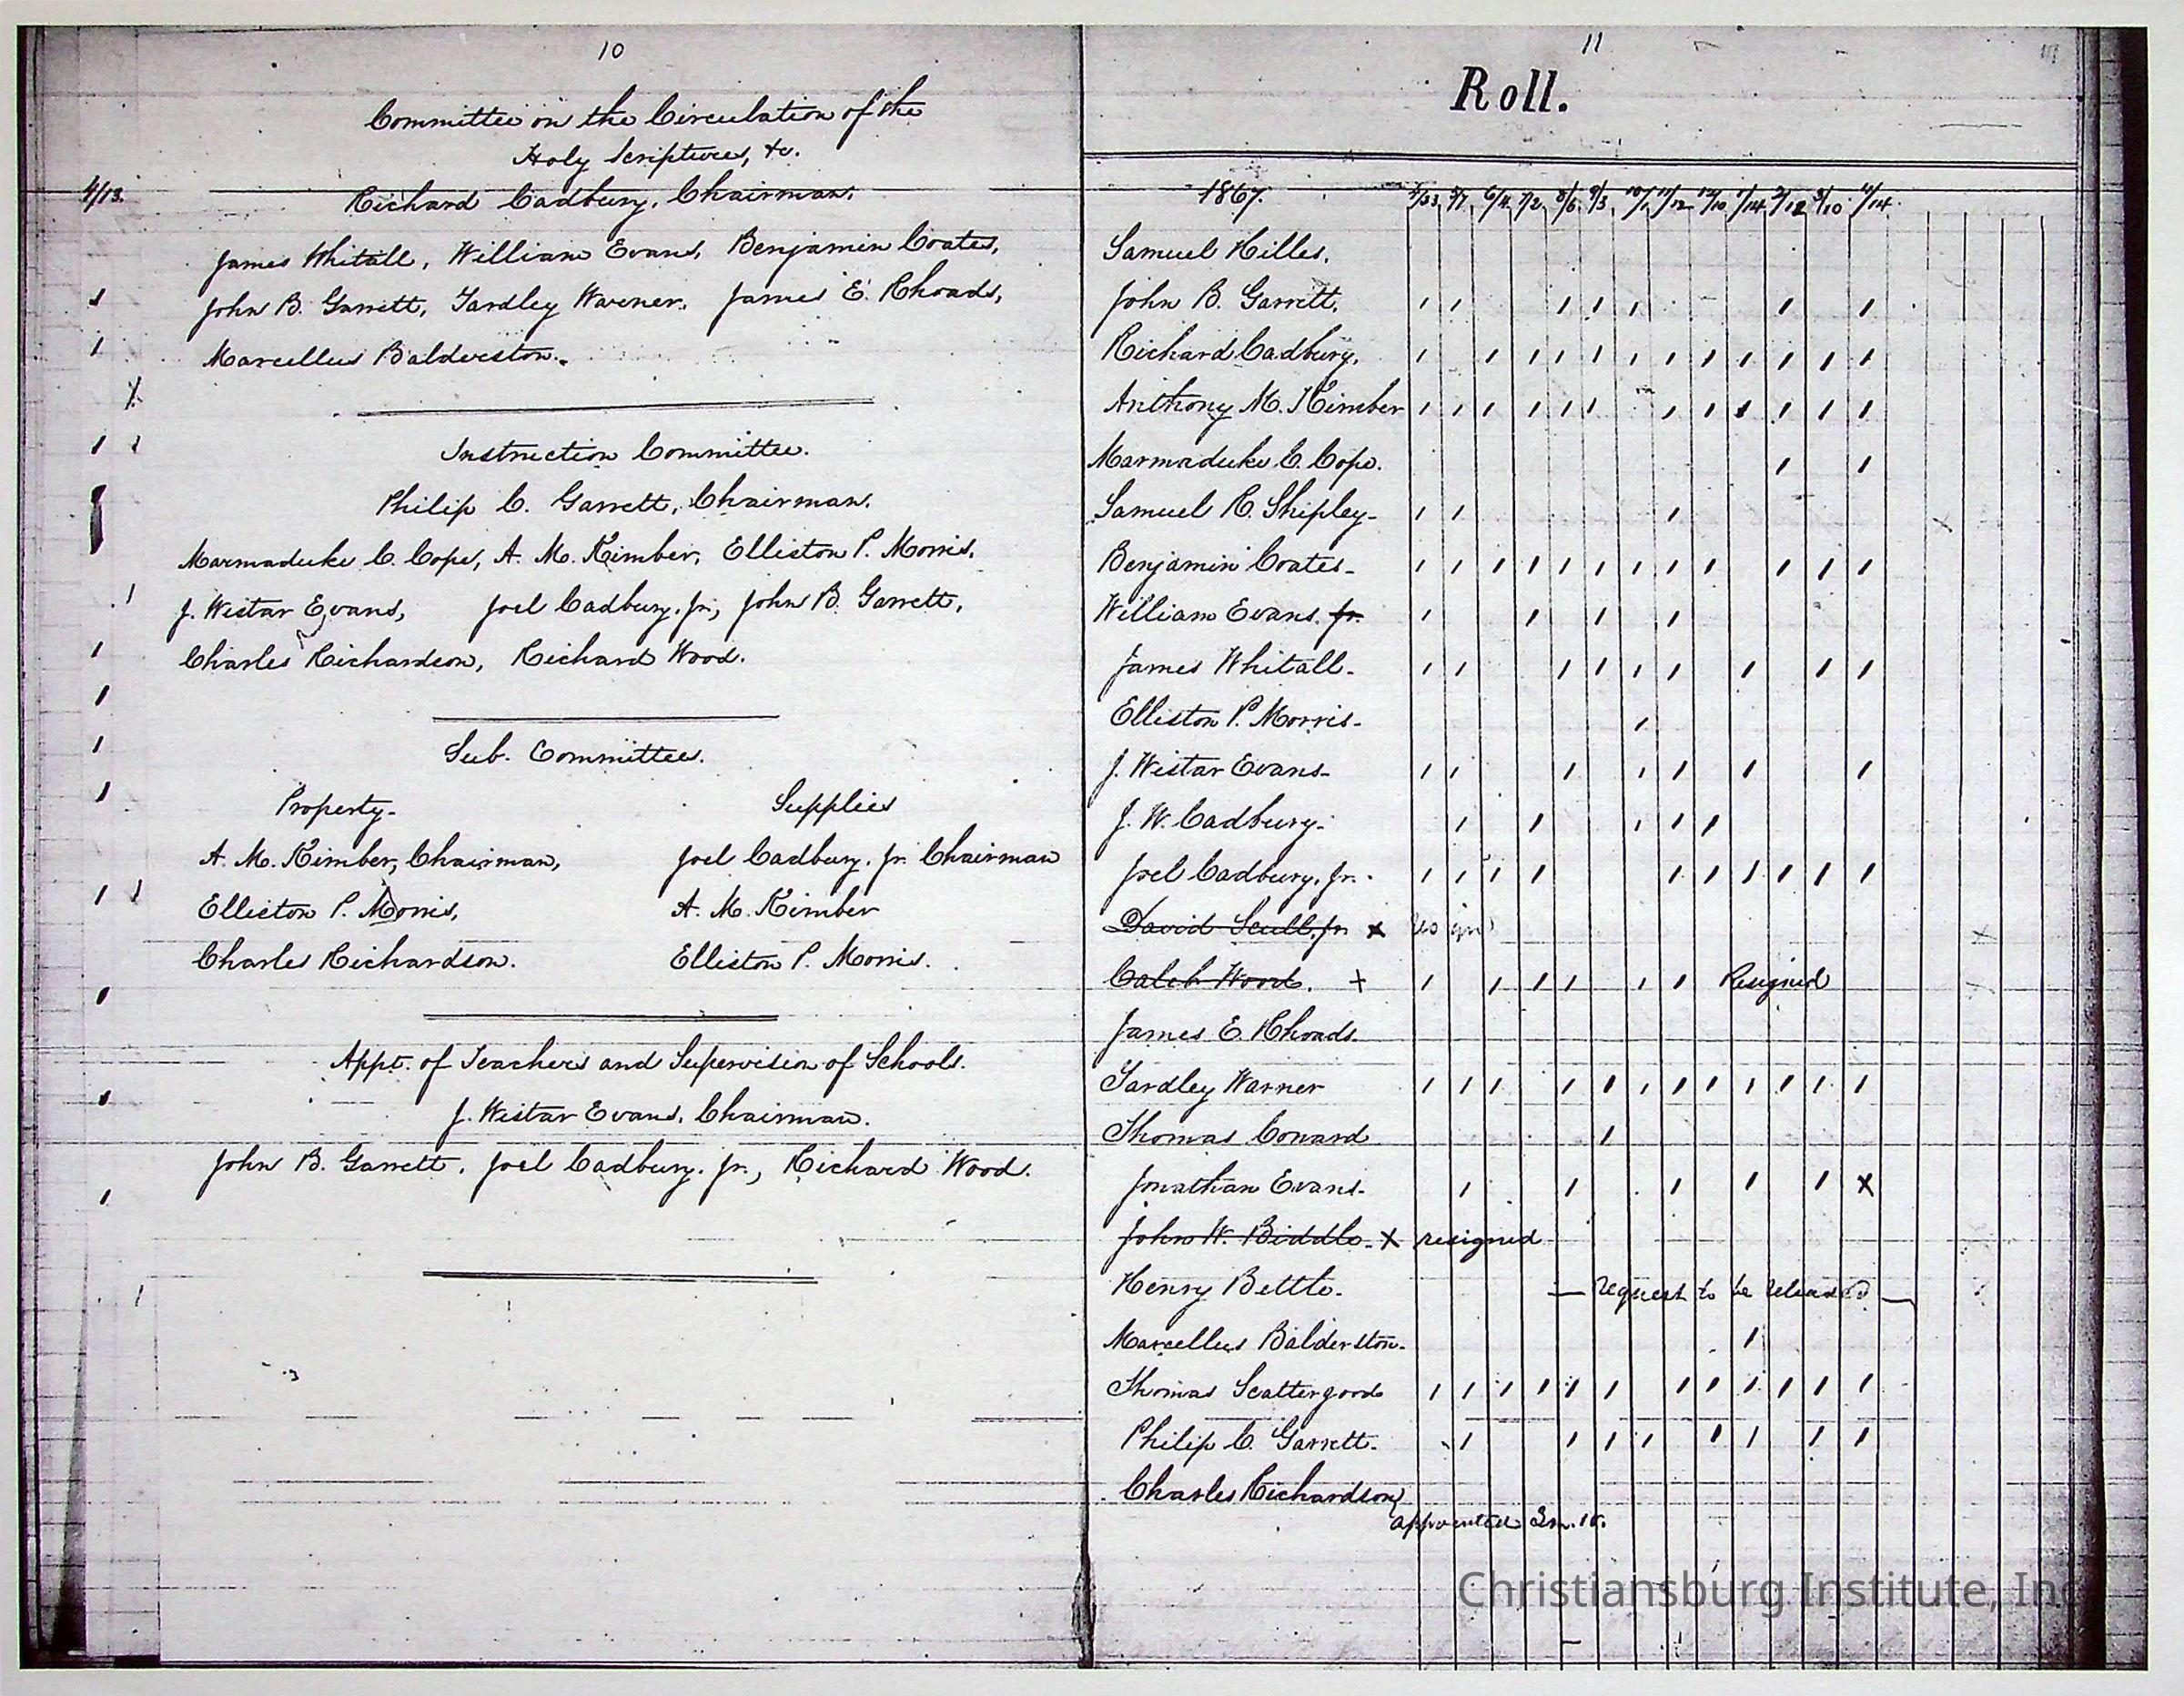 10
Committee on the Circulation of the
Holy Scriptures, &c.
4/13.
Richard Cadbury, Chairman.
James Whitall, William Evans, Benjamin Coates,
John B. Garrett, Yardley Warner, James E. Rhoads,
Marcellus Balderston.
Instruction Committee.
Philip C. Garrett, Chairman.
Marmaduke C. Cope, A. M. Kimber, Elliston P. Morris,
J. Wistar Evans, Joel Cadbury, Jr., John B. Garrett,
Charles Richardson, Richard Wood.
Sub. Committees.
Property. Supplies
A. M. Kimber, Chairman, Joel Cadbury, Jr. Chairman
Elliston P. Morris, A. M. Kimber
Charles Richardson. Elliston P. Morris.
Appt. of Teachers and Supervision of Schools.
J. Wistar Evans, Chairman.
John B. Garrett, Joel Cadbury, Jr., Richard Wood.
11
Roll.
1867. 5/7 6/4 7/2 8/6 9/3 10/1 11/12 12/10 1/14 2/12 3/10 4/14
Samuel Hilles.
John B. Garrett.
Richard Cadbury.
Anthony M. Kimber
Marmaduke C. Cope.
Samuel R. Shipley
Benjamin Coates
William Evans. Jr.
James Whitall
Elliston P. Morris
J. Wistar Evans
J. W. Cadbury
Joel Cadbury, Jr.
David Scull, Jr. x
Caleb Wood. + Resigned
James E. Rhoads.
Yardley Warner
Thomas Conard
Jonathan Evans x
John W. Biddle x resigned
Henry Bettle. request to be released
Marcellus Balderston.
Thomas Scattergood
Philip C. Garrett.
Charles Richardson
appointed
Christiansburg Institute, Inc